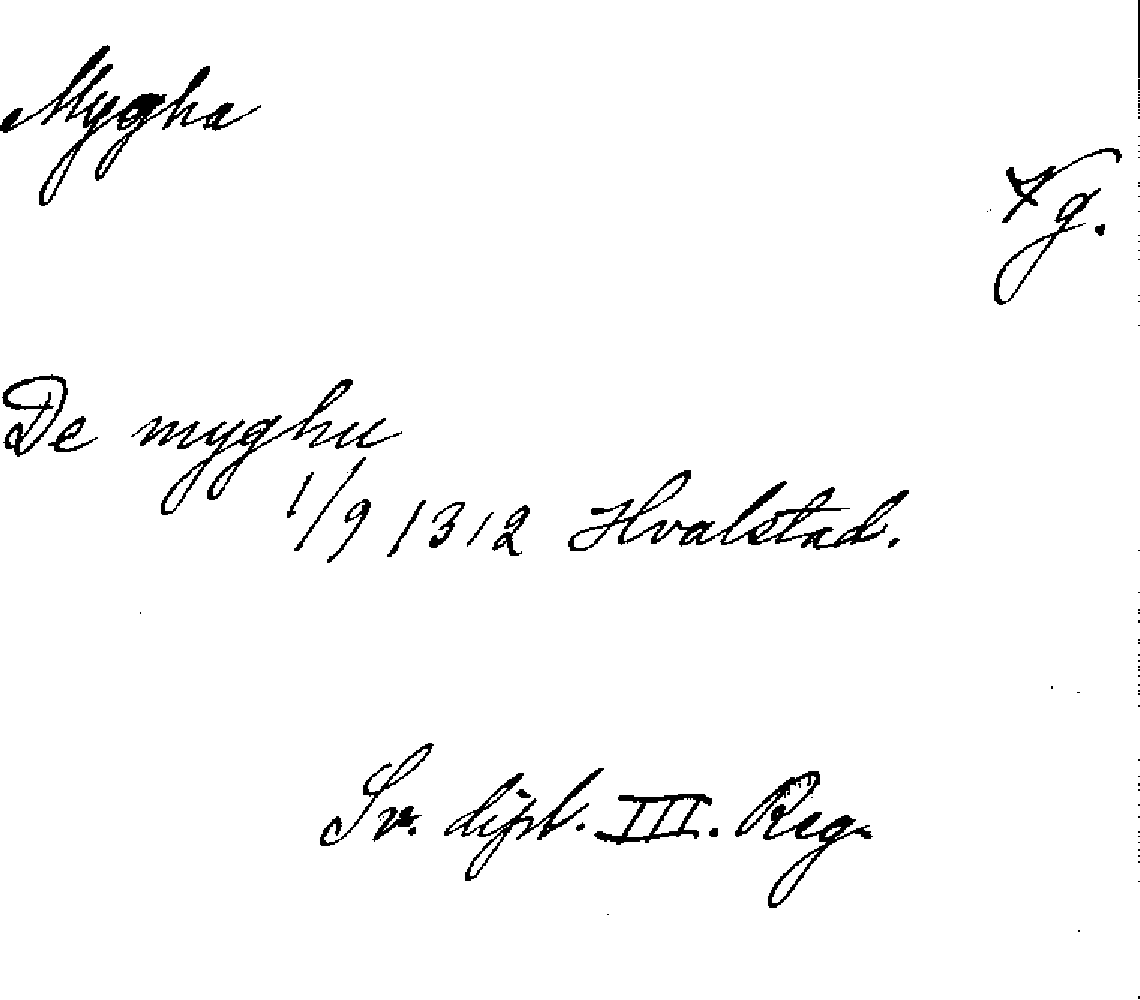 Mygha
Vg.
De myghu
1/9 1312 Hvalstad.
Sv. dipl. III. Reg.